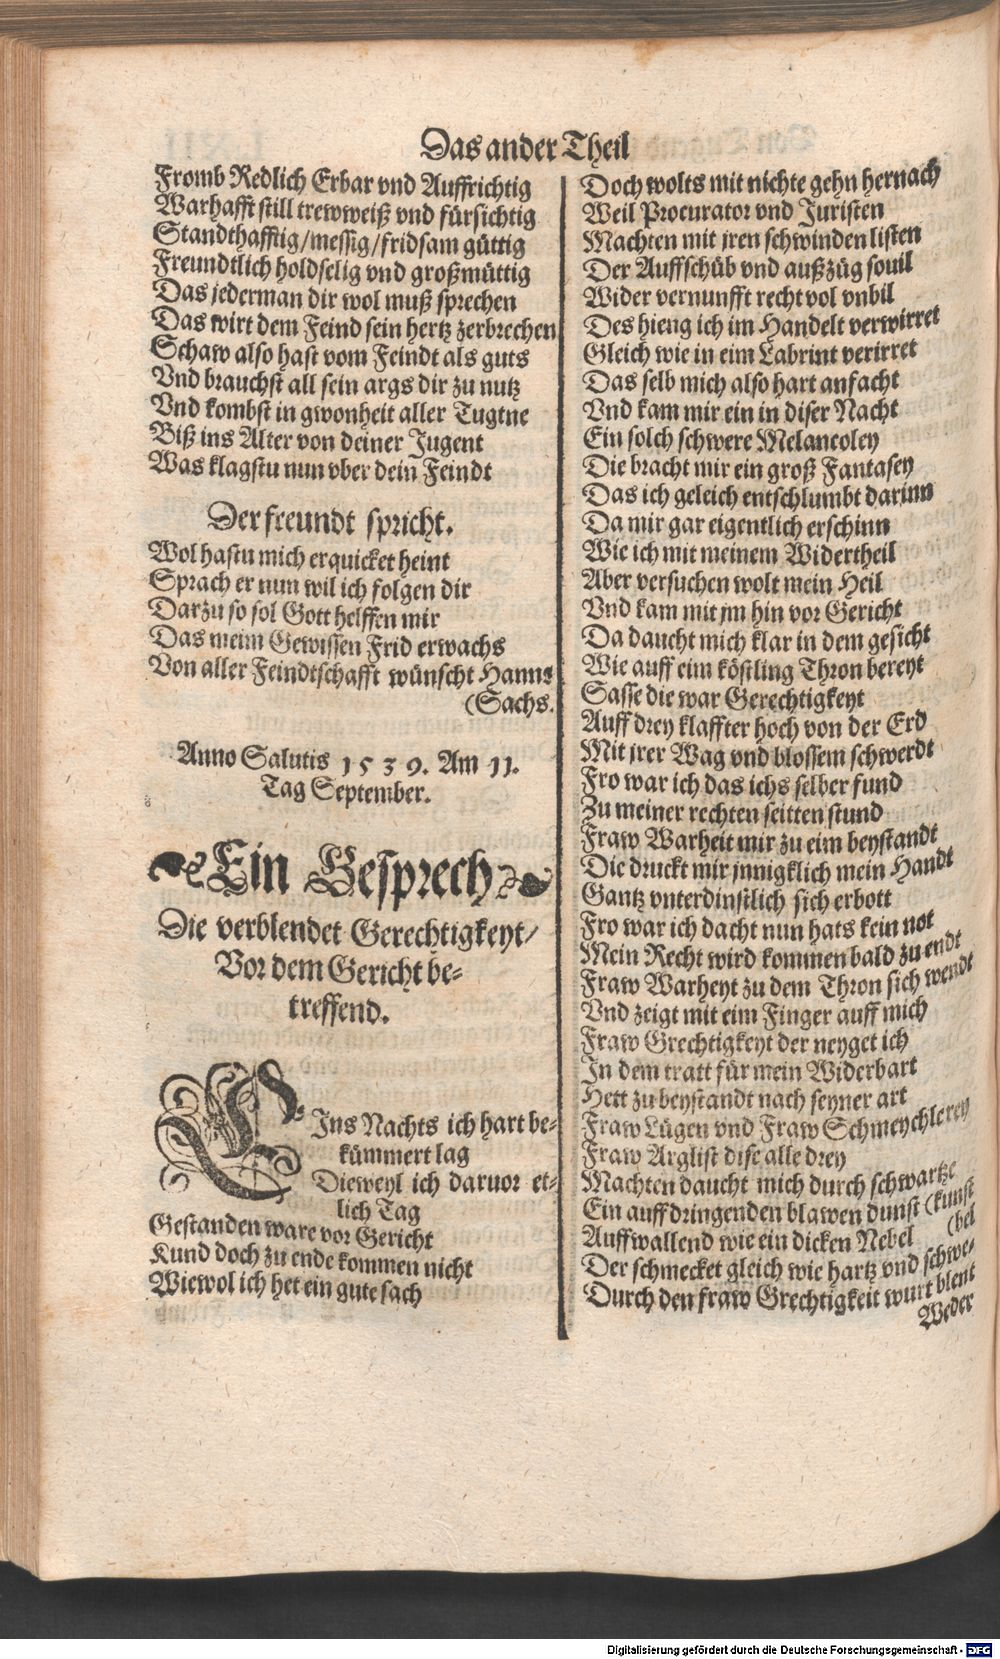 Das ander Theil
Fromb Redlich Erbar vnd Auffrichtig
Warhafft still trewweiß vnd fürsichtig
Standthafftig/messig/fridsam güttig
Freundtlich holdselig vnd großmüttig
Das jederman dir wol muß sprechen
Das wirt dem Feind sein hertz zerbrechen
Schaw also hast vom Feindt als guts
Vnd brauchst all sein args dir zu nutz
Vnd kombst in gwonheit aller Tugtne
Biß ins Alter von deiner Jugent
Was klagstu nun vber dein Feindt
Der freundt spricht.
Wol hastu mich erquicket heint
Sprach er nun wil ich folgen dir
Darzu so sol Gott helffen mir
Das meim Gewissen Frid erwachs
Von aller Feindtschafft wünscht Hanns
(Sachs.
Anno Salutis 1539. Am 11.
Tag September.
Ein Gesprech
Die verblendet Gerechtigkeyt/
Vor dem Gericht be-
treffend.
EIns Nachts ich hart be-
kümmert lag
Dieweyl ich daruor et-
lich Tag
Gestanden ware vor Gericht
Kund doch zu ende kommen nicht
Wiewol ich het ein gute sach
Doch wolts mit nichte gehn hernach
Weil Procurator vnd Juristen
Machten mit jren schwinden listen
Der Auffschüb vnd außzüg souil
Wider vernunfft recht vol vnbil
Des hieng ich im Handelt verwirret
Gleich wie in eim Labrint verirret
Das selb mich also hart anfacht
Vnd kam mir ein in diser Nacht
Ein solch schwere Melancoley
Die bracht mir ein groß Fantasey
Das ich geleich entschlumbt darinn
Da mir gar eigentlich erschinn
Wie ich mit meinem Widertheil
Aber versuchen wolt mein Heil
Vnd kam mit jm hin vor Gericht
Da daucht mich klar in dem gesicht
Wie auff eim köstling Thron bereyt
Sasse die war Gerechtigkeyt
Auff drey klaffter hoch von der Erd
Mit jrer Wag vnd blossem schwerdt
Fro war ich das ichs selber fund
Zu meiner rechten seitten stund
Fraw Warheit mir zu eim beystandt
Die druckt mir jnnigklich mein Handt
Gantz vnterdinstlich sich erbott
Fro war ich dacht nun hats kein not
Mein Recht wird kommen bald zu endt
Fraw Warheyt zu dem Thron sich wendt
Vnd zeigt mit eim Finger auff mich
Fraw Grechtigkeyt der neyget ich
In dem tratt für mein Widerbart
Hett zu beystandt nach seyner art
Fraw Lügen vnd Fraw Schmeychlerey
Fraw Arglist dise alle drey
Machten daucht mich durch schwartze
Ein auffdringenden blawen dunst (kunst
Auffwallend wie ein dicken Nebel (bel
Der schmecket gleich wie hartz vnd schwe-
Durch den fraw Grechtigkeit wurt blent
Weder
Digitalisierung gefördert durch die Deutsche Forschungsgemeinschaft - DFG